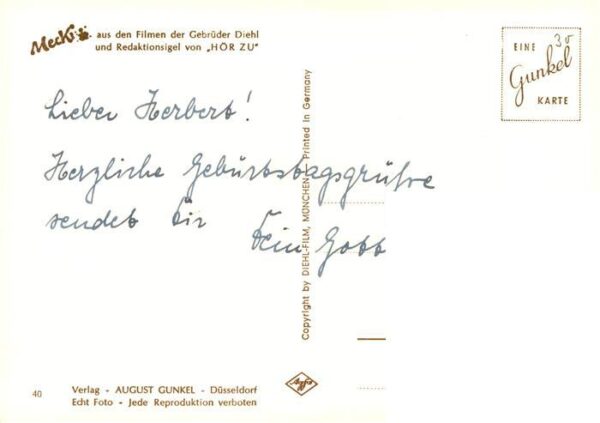 Mecki aus den Filmen der Gebrüder Diehl
und Redaktionsigel von „HÖR ZU"
EINE 30
Gunkel
KARTE
Lieber Herbert!
Herzliche Geburtstagsgrüße
sendet Dir Dein Gott
Copyright by DIEHL-FILM, MÜNCHEN - Printed in Germany
40
Verlag - AUGUST GUNKEL - Düsseldorf
Echt Foto - Jede Reproduktion verboten
Agfa